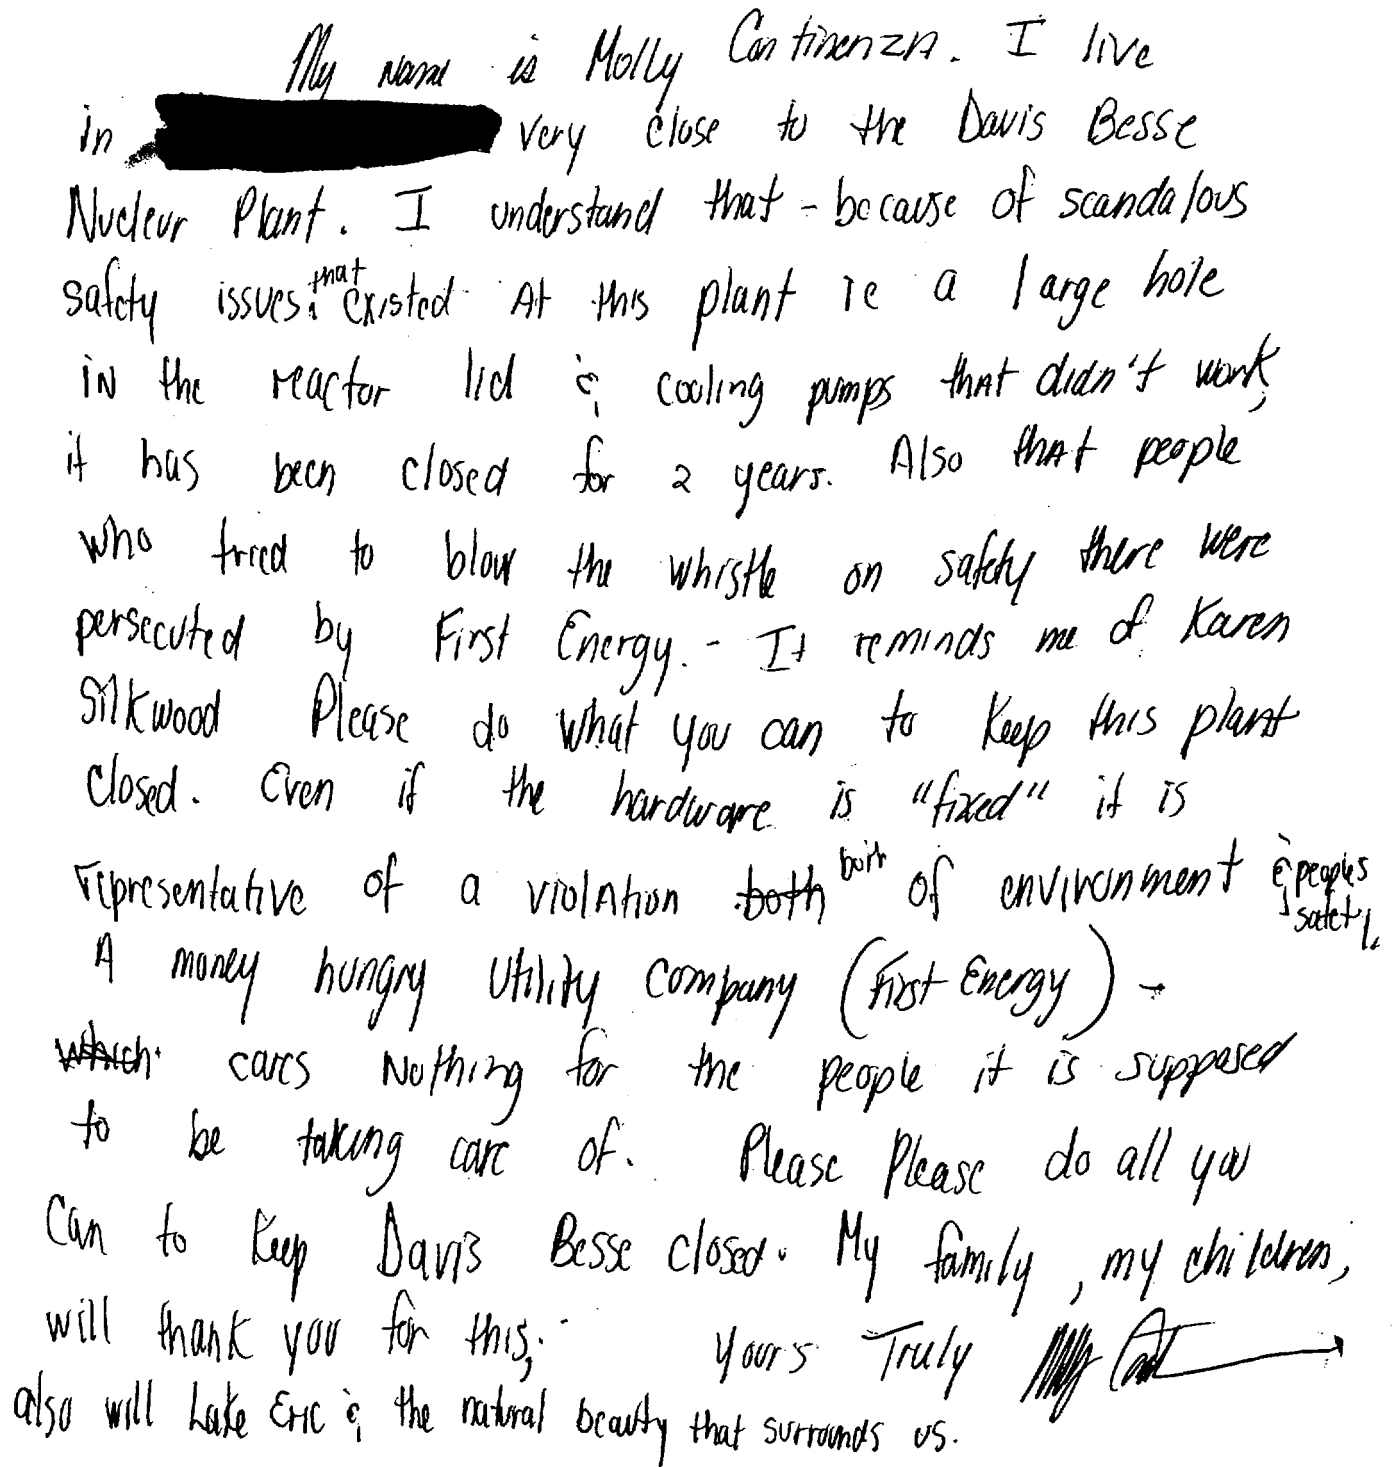 My name is Molly Continenza. I live
in very close to the Davis Besse
Nucleur Plant. I understand that - because of scandalous
safety issues that existed At this plant ie a large hole
in the reactor lid & cooling pumps that didn't work,
it has been closed for 2 years. Also that people
who tried to blow the whistle on safety there were
persecuted by First Energy. - It reminds me of Karen
Silkwood Please do what you can to keep this plant
closed. Even if the hardware is "fixed" it is
representative of a violation both both of environment & peoples safety.
A money hungry utility company (First Energy) -
which cares nothing for the people it is supposed
to be taking care of. Please Please do all you
can to keep Davis Besse closed. My family, my children,
will thank you for this, Yours Truly Molly Cont
also will Lake Erie & the natural beauty that surrounds us.